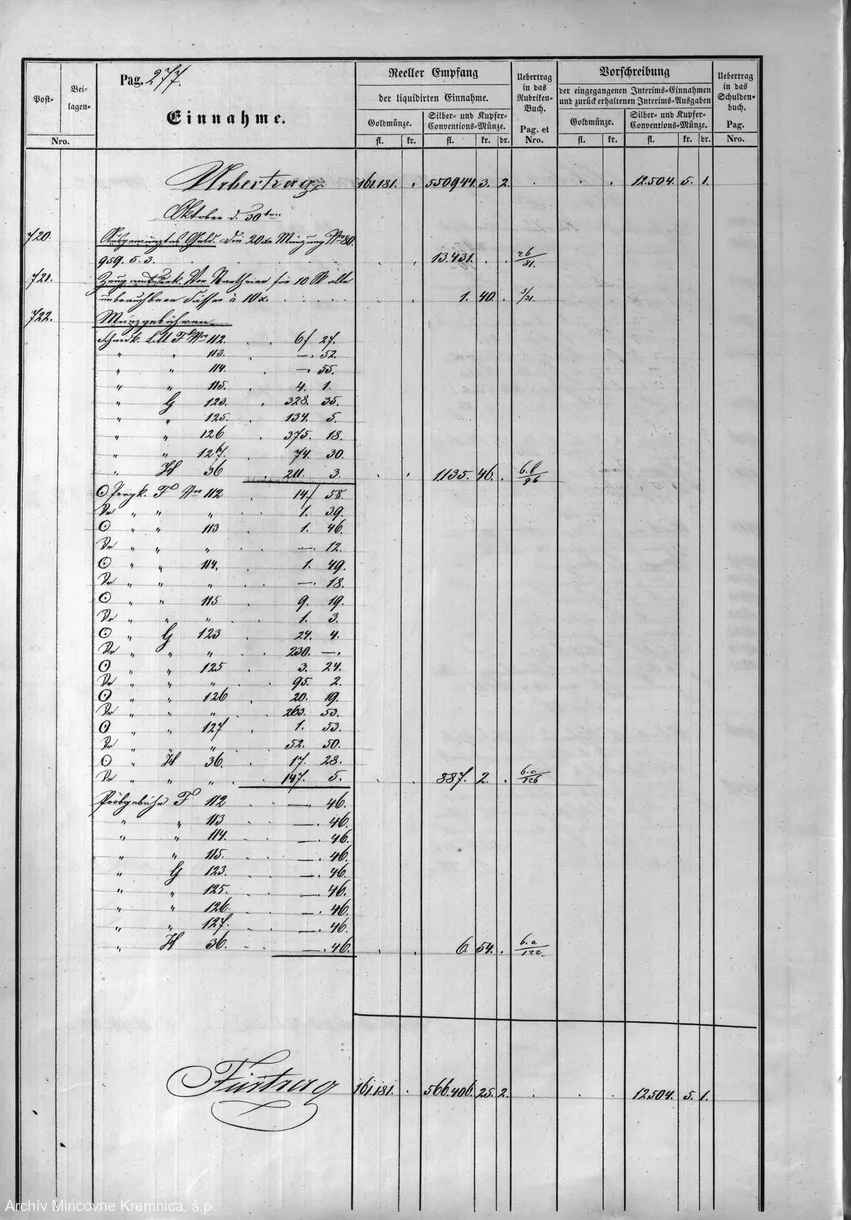 Pag. 277.
Einnahme.
Post-
Bei-
lagen-
Nro.
Reeller Empfang
der liquidirten Einnahme.
Goldmünze.
Silber- und Kupfer-
Conventions-Münze.
fl. kr. fl. kr. dr.
Uebertrag
in das
Rubriken-
Buch.
Pag. et
Nro.
Vorschreibung
der eingegangenen Interims-Einnahmen
und zurück erhaltenen Interims-Ausgaben
Goldmünze.
Silber- und Kupfer-
Conventions-Münze.
fl. kr. fl. kr. dr.
Uebertrag
in das
Schulden-
buch.
Pag.
Uibertrag 161.181. . 550944. 3. 2. . . . 12.504. 5. 1.
Oktober d. 30ten
720. Ausgemünztes Geld. Die 20xr Münzung Nro 80.
959. 5. 3. 13.431. . . 26/31.
721. für 10 ℔ alte
unbrauchbare Fässer à 10x. 1. 40. . 5/31.
722. Münzgebühren.
Schmk. litt F Nro 112. 6f 27.
" " 113. —. 52.
" " 114. —. 55.
" " 115. 4. 1.
" G 123. 328. 35.
" " 125. 134. 5.
" " 126 375. 18.
" " 127. 74. 30
" H 36 211. 3. . . 1.135. 46. . 6.b/96
F Nro 112 14f 58.
" " " 1. 39.
" " 113 1. 46.
" " " —. 12.
" " 114. 1. 49.
" " " —. 18.
" " 115 9. 19.
" " " 1. 3.
" G 123 24. 4.
" " " 230. —.
" " 125 3. 24.
" " " 95. 2.
" " 126 20. 19.
" " " 263. 53.
" " 127 1. 53.
" " " 52. 50.
" H 36. 17. 28.
" " " 147. 5. . . 887. 2. . 6.c/126
Probgebühr F 112 —. 46.
" " 113 —. 46.
" " 114. —. 46.
" " 115. —. 46.
" G 123. —. 46.
" " 125. —. 46.
" " 126. —. 46.
" " 127. —. 46.
" H 36. —. 46. . . 6. 54. . 6.a/122.
Fürtrag 161.181. . 566.406. 25. 2. . . . 12504. 5. 1.
Archív Mincovne Kremnica, š.p.